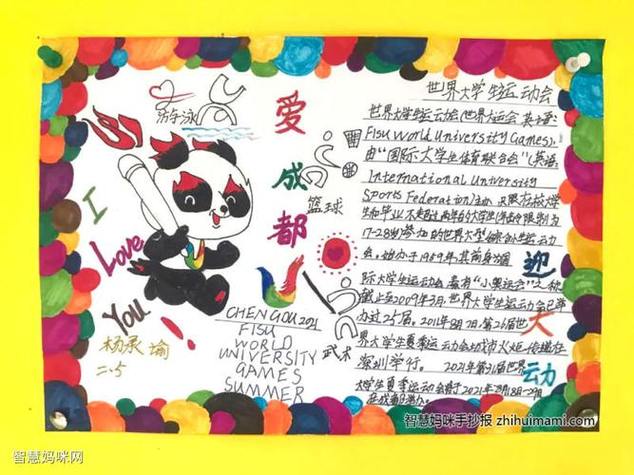 游泳
爱
成
都
篮球
I
Love
You
!
杨承瑜
二.5
CHENGDU 2021
FISU
WORLD
UNIVERSITY
GAMES
SUMMER
武术
世界大学生运动会
世界大学生运动会(世界大运会 英语:
FISU World University Games),
由"国际大学生体育联合会"(英语,
International University
Sports Federation)主办,只限在校大学
生和毕业不超过两年的大学生(年龄限制为
17-28岁)参加的世界大型综合性运动
会。始办于1959年,其前身为国
际大学生运动会,素有"小奥运会"之称
截止至2009年
世界大学生运动会已举
办过25届。2011年8月
第26届世
界大学生夏季运动会
深圳举行。
2021年第31届世界
大学生夏季运动会将于2021年8月18-29日
在成都举办。
迎
大
动力
智慧妈咪手抄报 zhihuimami.com
智慧妈咪网